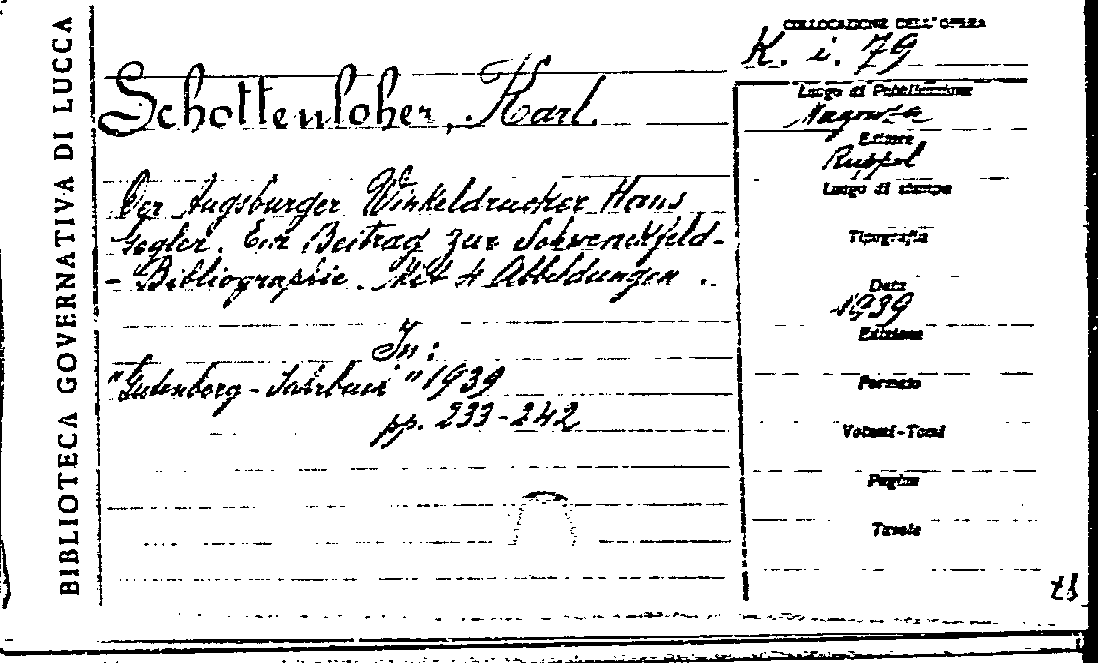 BIBLIOTECA GOVERNATIVA DI LUCCA
COLLOCAZIONE DELL'OPERA
K. i. 79
Schottenloher, Karl.
Der Augsburger Winkeldrucker Hans
Gegler. Ein Beitrag zur Schwenckfeld-
- Bibliographie. Mit 4 Abbildungen ..
In:
"Gutenberg - Jahrbuch" 1939
pp. 233-242
Luogo di Pubblicazione
Magonza
Editore
Ruppel
Luogo di stampa
Tipografia
Data
1939
Edizione
Formato
Volumi-Tomi
Pagine
Tavole